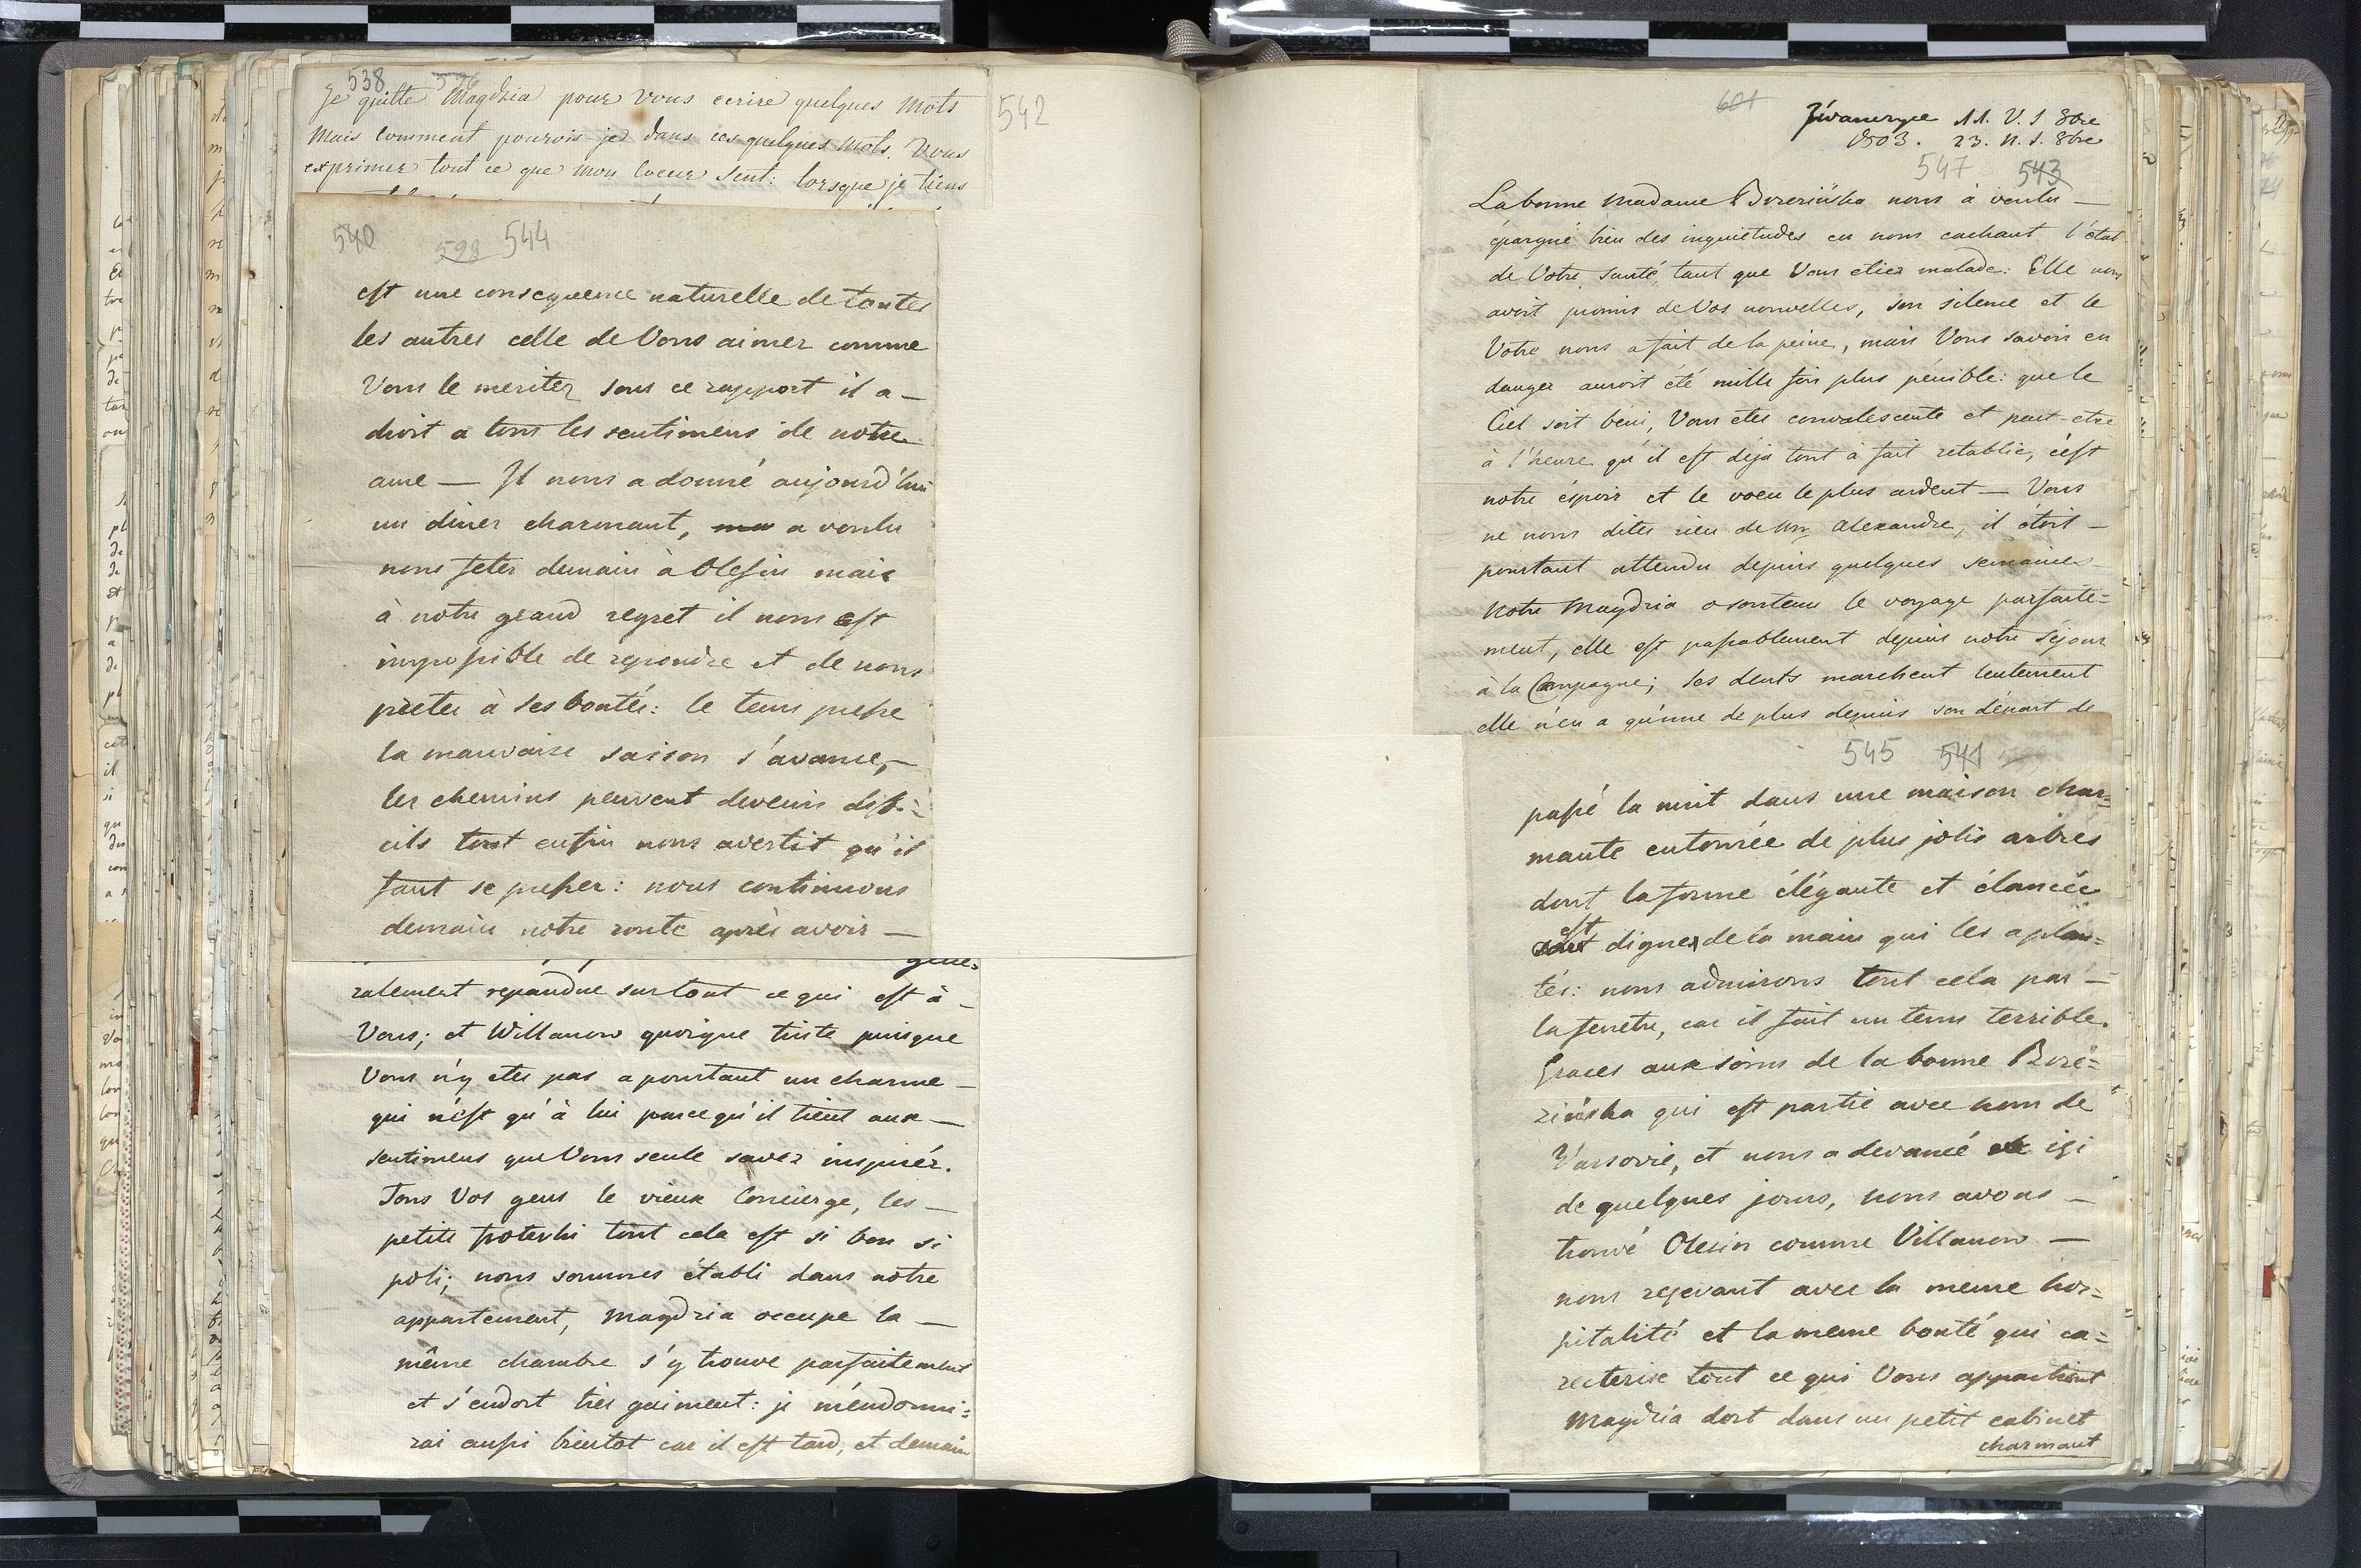 538 596
Je quitte Magdzia pour vous ecrire quelques mots
542
Mais comment pourois-je dans ces quelques mots. Vous
exprimer tout ce que mon coeur sent: lorsque je tiens
540 598 544
est une consequence naturelle de toutes
les autres celle de Vous aimer comme
Vous le meritez sous ce rapport il a —
droit a tous les sentimens de notre
ame — Il nous a donné aujourd'hui
un diner charmant, a voulu
nous feter demain à Olesin mais
à notre grand regret il nous est
impossible de repondre et de nous
preter à ses bontés: le tems presse
la mauvaise saison s'avance, —
les chemins peuvent devenir diffi=
cils tout enfin nous avertit qu'il
faut se presser: nous continuons
demain notre route après avoir —
gene=
ralement repandue sur tout ce qui est à —
Vous; et Willanow quoique triste puisque
Vous n'y etes pas a pourtant un charme —
qui n'est qu'à lui parcequ'il tient aux —
sentimens que Vous seule savez inspirér.
Tous Vos gens le vieux Concierge, les —
petits tout cela est si bon si
poli; nous sommes établi dans notre
appartement, Magdzia occupe la —
même chambre s'y trouve parfaitement
et s'endort très gaiment: je m'endormi=
rai aussi bientot car il est tard, et demain
601
11. V. S 8bre
1803. 23. N. S. 8bre
547 543
La bonne Madame Bozezińska nous à voulu —
épargné bien des inquietudes en nous cachant l'état
de Votre santé, tant que Vous etiez malade: Elle nous
avoit promis de Vos nouvelles, son silence et le
Votre nous a fait de la peine, mais Vous savoir en
danger auroit été mille fois plus pénible: que le
Ciel soit beni, Vous etes convalescente et peut-etre
à l'heure qu'il est déja tout à fait retablie, c'est
notre éspoir et le voeu le plus ardent — Vous
ne nous dites rien de Mr Alexandre, il étoit —
pourtant attendu depuis quelques semaines —
Notre Magdzia a soutenu le voyage parfaite=
ment, elle est passablement depuis notre séjour
à la Campagne; ses dents marchent lentement
elle n'en a qu'une de plus depuis son départ de
545 541 599
passé la nuit dans une maison char=
mante entourée de plus jolis arbres
dont la forme élégante et élancée
est
digne de la main qui les a plan=
tés: nous admirons tout cela par —
la fenetre, car il fait un tems terrible.
Graces aux soins de la bonne Bozé=
zińska qui est partie avec nous de
Varsovie, et nous a devancé içi
de quelques jours, nous avons —
trouvé Olesin comme Villanow —
nous reçevant avec la meme hos=
pitalité et la meme bonté qui ca=
recterise tout ce qui Vous appartient
Magdzia dort dans un petit cabinet
charmant